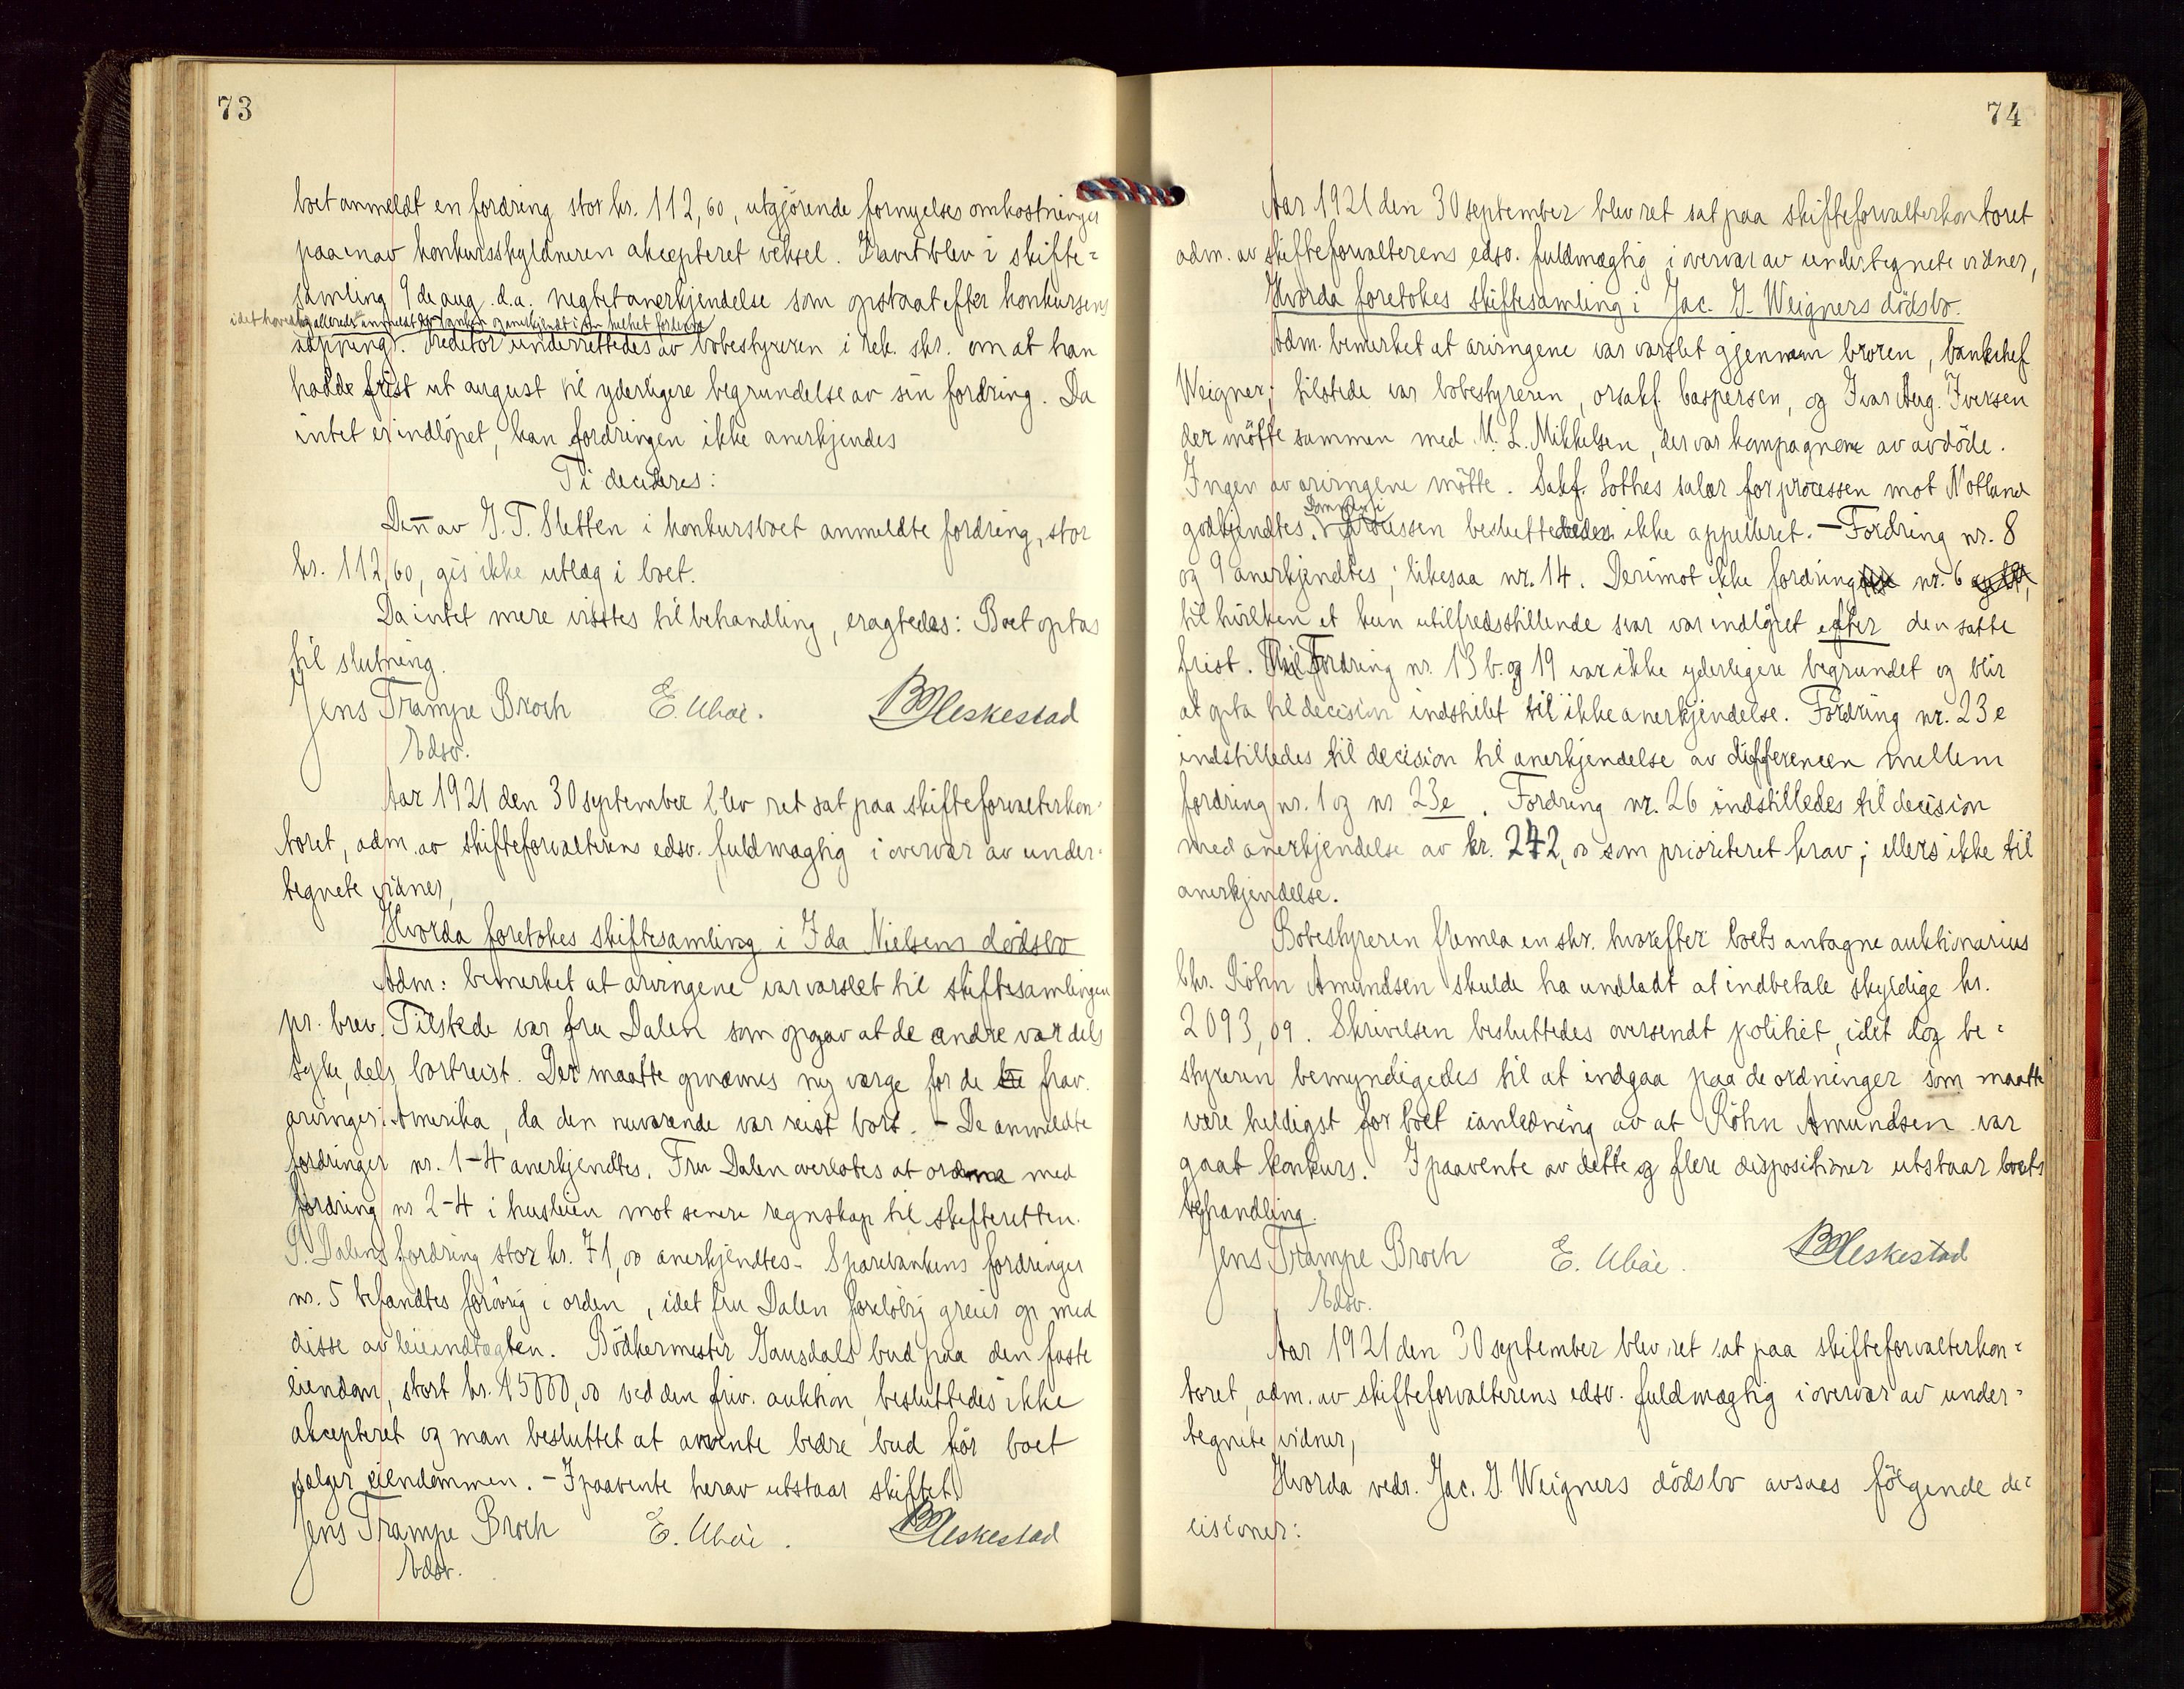 73
boet anmeldt en fordring stor kr. 112,60, utgjørende fornyelses omkostninger
paa en av konkursskyldneren akcepteret veksel. Kravet blev i skifte-
samling 9 de aug. d.a. negtet anerkjendelse som opstaat efter konkursens
idet hoved allerede anmeldt av banken og anerkjendt i sin helhet forlengst
aapning. Kreditor underrettedes av bobestyreren i rek. skr. om at han
hadde frist ut august til yderligere begrundelse av sin fordring. Da
intet er indløpet, kan fordringen ikke anerkjendes
Ti decideres:
Den av G. T. Sletten i konkursboet anmeldte fordring, stor
kr. 112,60, gis ikke utlæg i boet.
Da intet mere visstes til behandling, eragtedes: Boet optas
til slutning.
Jens Trampe Broch E. Uboe. B M Leskestad
Edsv.
Aar 1921 den 30 september blev ret sat paa skifteforvalterkon-
toret, adm. av skifteforvalterens edsv. fuldmægtig i overvær av under-
tegnete vidner,
Hvorda foretokes skiftesamling i Ida Nielsens dödsbo
Adm: bemerket at arvingene var varslet til skiftesamlingen
pr. brev. Tilstede var fru Dalen som opgav at de andre var dels
syke, dels bortreist. Der maatte opnævnes ny værge for de frav.
arvinger i Amerika, da den nuværende var reist bort. - De anmeldte
fordringer nr. 1-4 anerkjendtes. Fru Dalen overlotes at ordne med
fordring nr 2-4 i husleien mot senere regnskap til skifteretten.
S. Dalens fordring stor kr. 71,00 anerkjendtes. Sparebankens fordringer
nr. 5 befandtes forövrig i orden, idet fru Dalen foreløbig greier op med
disse av leieindtægten. Bödkermester Gausdals bud paa den faste
eiendom, stort kr. 15000,00 ved den friv. auktion, besluttedes ikke
akcepteret og man besluttet at avvente bedre bud för boet
sælger eiendommen. - I paavente herav utstaar skiftet.
Jens Trampe Broch E. Uboe. B M Leskestad
Edsv.
74
Aar 1921 den 30 september blev ret sat paa skifteforvalterkontoret
adm. av skifteforvalterens edsv. fuldmægtig i overvær av undertegnete vidner,
Hvorda foretokes skiftesamling i Jac. G. Weigners dödsbo.
Adm. bemerket at arvingene var varslet gjennem broren, bankchef
Weigner; tilstede var bobestyreren, orsakf. Caspersen, og Ivar Aug. Iversen
der mötte sammen med M. L. Mikkelsen, der var kompagnon av avdöde.
Ingen av arvingene mötte. Sakf. Lothes salær for processen mot Notland
Dommen i
godkjendtes. processen besluttedes ikke appelleret. - Fordring nr. 8
og 9 anerkjendtes; likesaa nr. 14. Derimot ikke fordring nr. 6
til hvilken et kun utilfredsstillende svar var indløpet efter den satte
frist. Fordring nr. 13 b. og 19 var ikke yderligere begrundet og blir
at opta til decision indstillet til ikke anerkjendelse. Fordring nr. 23 e
indstilledes til decision til anerkjendelse av differencen mellem
fordring nr. 1 og nr 23e. Fordring nr. 26 indstilledes til decision
med anerkjendelse av kr. 242,00 som prioriteret krav; ellers ikke til
anerkjendelse.
Bobestyreren fremla en skr. hvorefter boets antagne auktionarius
hr. Röhn Amundsen skulde ha undladt at indbetale skyldige kr.
2093,09. Skrivelsen besluttedes oversendt politiet, idet dog be-
styreren bemyndigedes til at indgaa paa de ordninger som maatte
være heldigst for boet i anledning av at Röhn Amundsen var
gaat konkurs. I paavente av dette og flere dispositioner utstaar boets
behandling.
Jens Trampe Broch E. Uboe. B M Leskestad
Edsv.
Aar 1921 den 30 september blev ret sat paa skifteforvalterkon-
toret, adm. av skifteforvalterens edsv. fuldmægtig i overvær av under-
tegnete vidner,
Hvorda vedr. Jac. G. Weigners dödsbo avsaes følgende de-
cisioner: